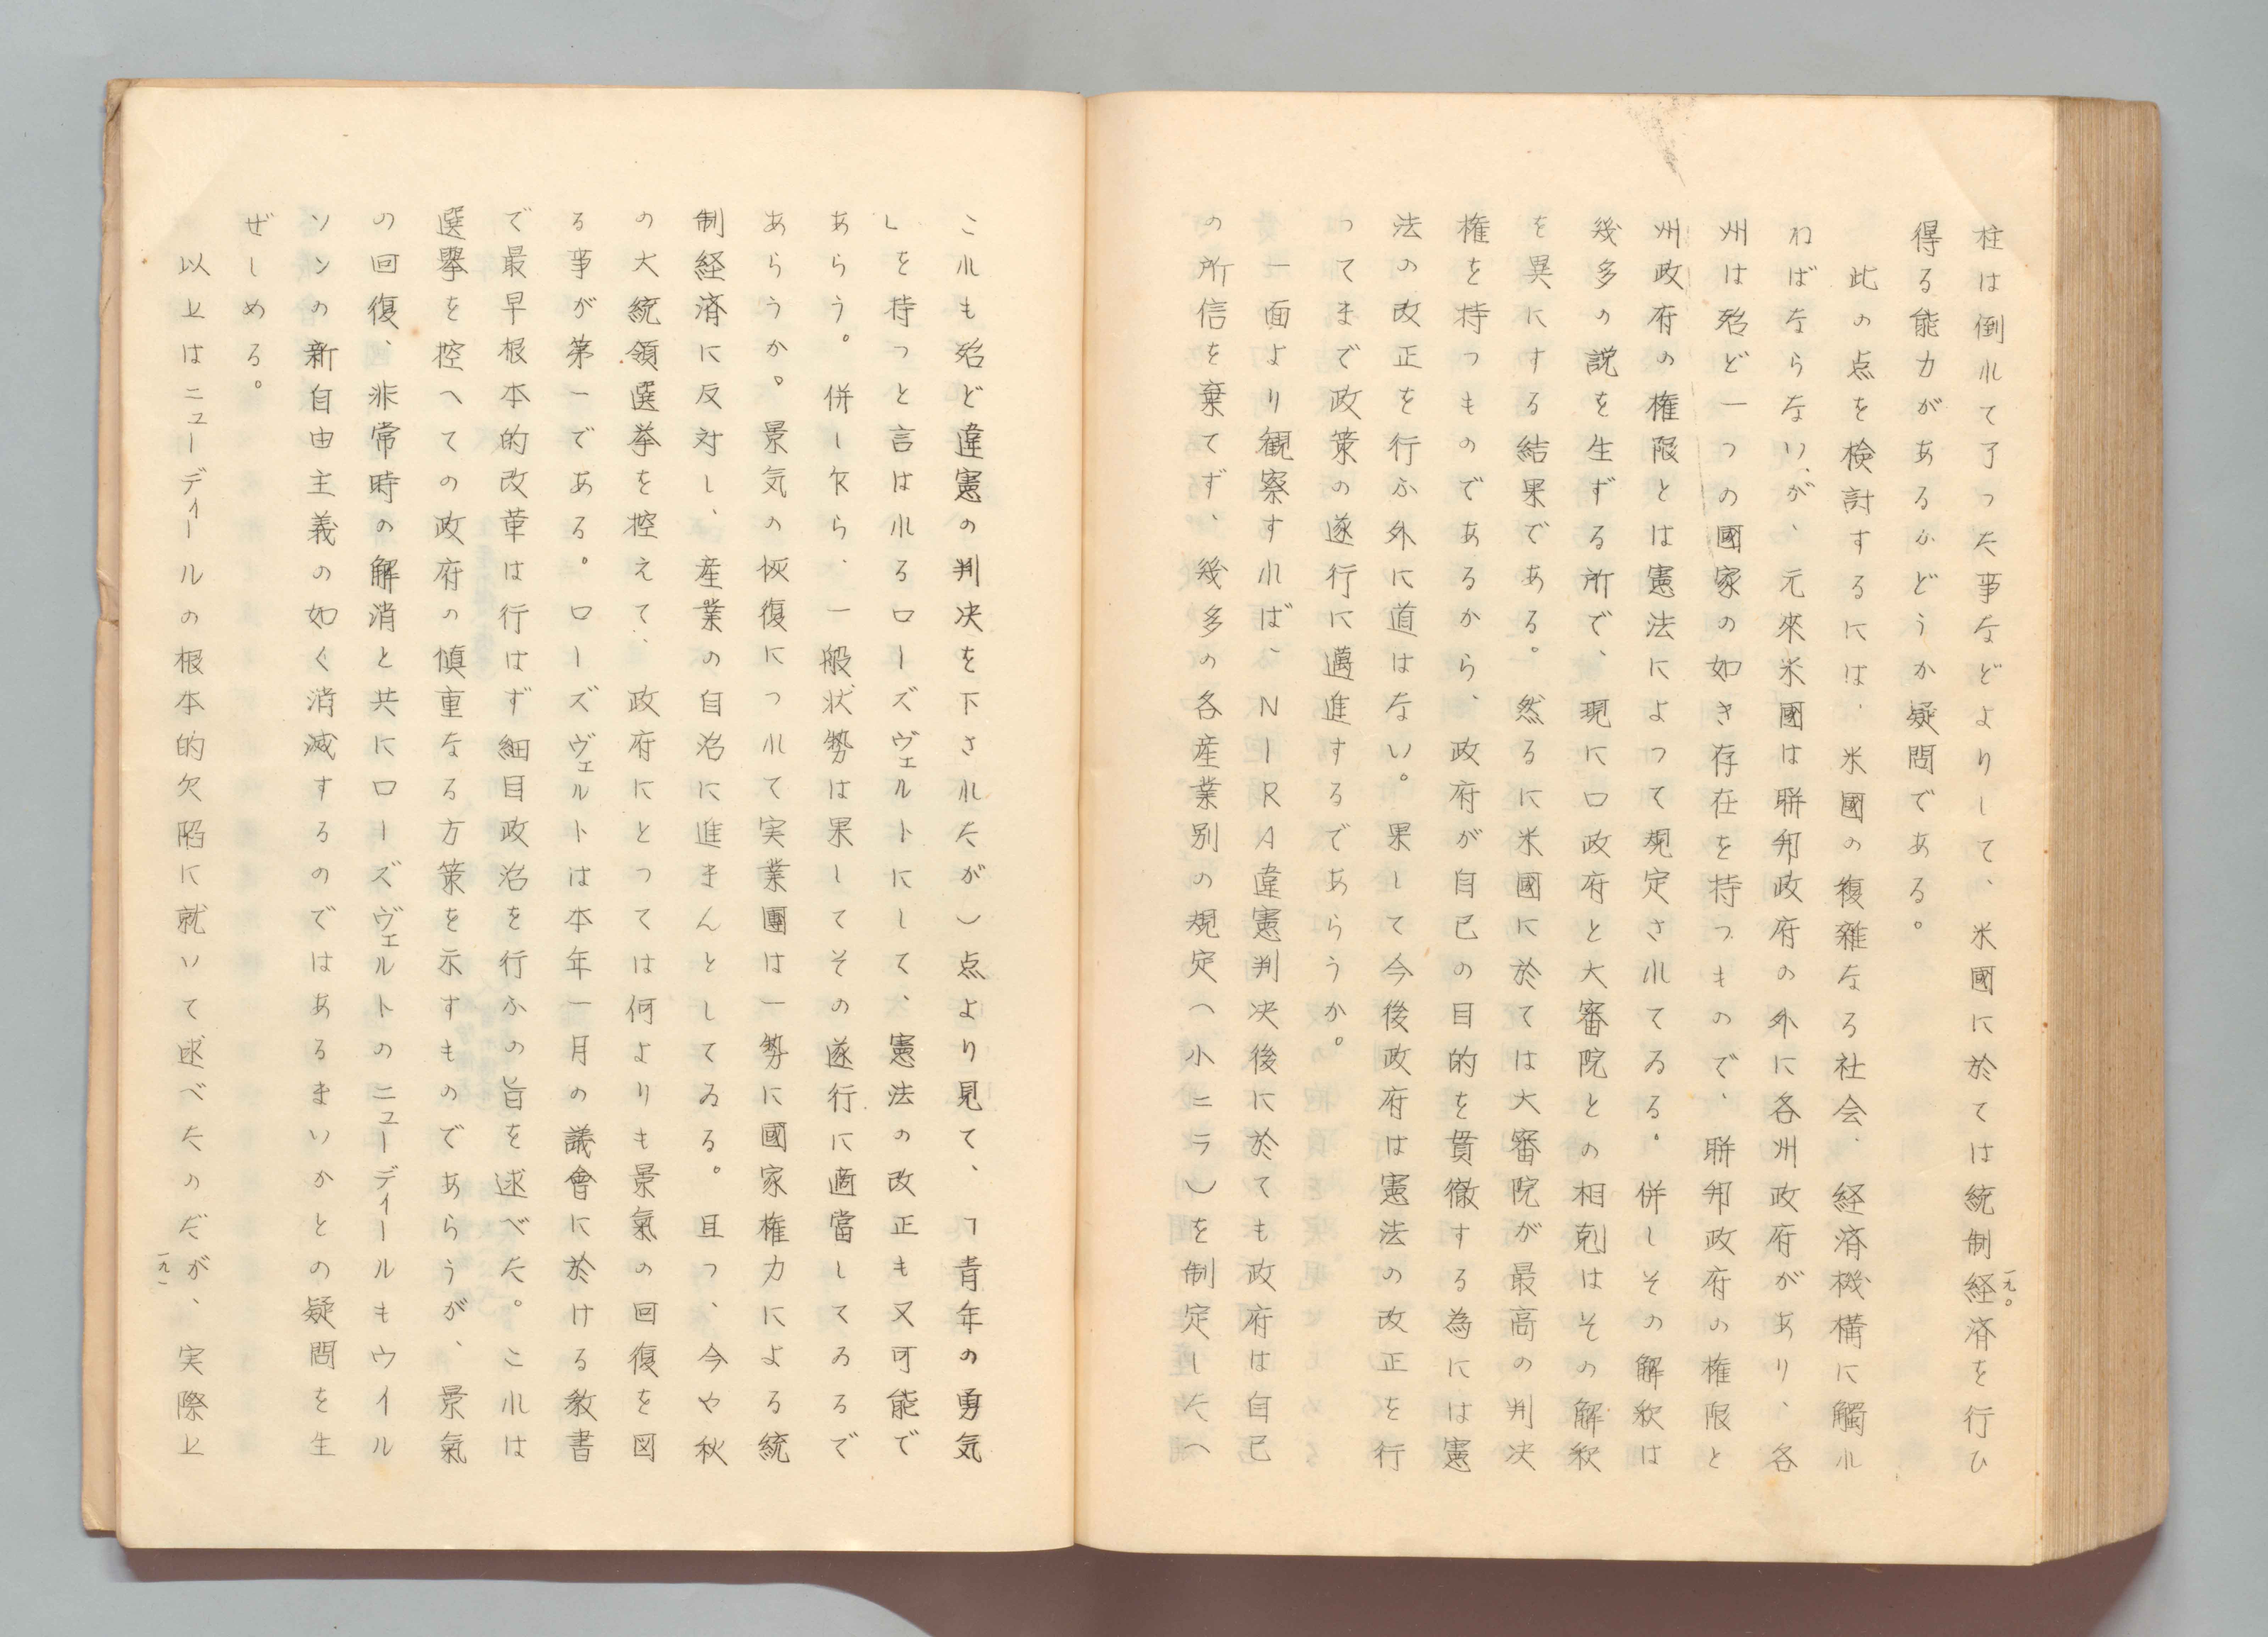 柱は倒れて了つた事などよりして、米國に於ては統制経済を行ひ
得る能力があるかどうか疑問である。
此の点を検討するには、米國の複雑なる社会、経済機構に觸れ
ねばならないが、元來米國は聯邦政府の外に各州政府があり、各
州は殆ど一つの國家の如き存在を持つもので、聯邦政府の権限と
州政府の権限とは憲法によつて規定されてゐる。併しその解釈は
幾多の説を生ずる所で、現にロ政府と大審院との相剋はその解釈
を異にする結果である。然るに米國に於ては大審院が最高の判决
権を持つものであるから、政府が自己の目的を貫徹する為には憲
法の改正を行ふ外に道はない。果して今後政府は憲法の改正を行
つてまで政策の遂行に邁進するであらうか。
一面より観察すれば、NIRA違憲判决後に於ても政府は自己
の所信を棄てず、幾多の各産業別の規定(小ニラ)を制定した(
一九〇
これも殆ど違憲の判决を下されたが)点より見て、「青年の勇気
」を持つと言はれるローズヴェルトにして、憲法の改正も又可能で
あらう。併し乍ら、一般状勢は果してその遂行に適當してゐるで
あらうか。景気の恢復につれて実業團は一勢に國家権力による統
制経済に反対し、産業の自治に進まんとしてゐる。且つ、今や秋
の大統領選挙を控えて、政府にとつては何よりも景氣の回復を図
る事が第一である。ローズヴェルトは本年一月の議會に於ける教書
で最早根本的改革は行はず細目政治を行ふの旨を述べた。これは
選擧を控へての政府の慎重なる方策を示すものであらうが、景氣
の回復、非常時の解消と共にローズヴェルトのニューディールもウイル
ソンの新自由主義の如く消滅するのではあるまいかとの疑問を生
ぜしめる。
以上はニューディールの根本的欠陥に就いて述べたのだが、実際上
一九一